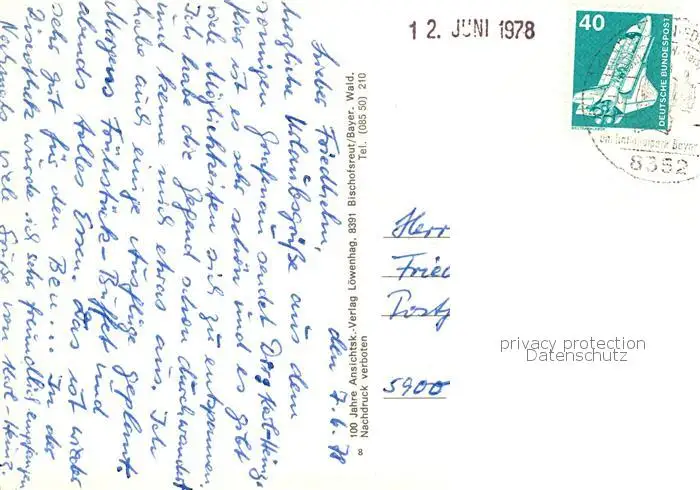 den 7.6.78
Lieber Friedhelm,
herzliche Urlaubsgrüße aus dem
sonnigen Grafenau sendet Dir Karl-Heinz.
Hier ist es sehr schön und es gibt
viele Möglichkeiten sich zu entspannen.
Ich habe die Gegend schon durchwandert
und kenne mich etwas aus. Ich
habe auch einige Ausflüge geplant.
Morgens Frühstücks-Buffet und
abends tolles Essen. Das ist wieder
sehr gut für den Bau... In der
Discothek wurde ich sehr freundlich empfangen
Nochmals viele Grüße von Karl-Heinz.
100 Jahre Ansichtsk.-Verlag Löwenhag, 8391 Bischofsreut/Bayer. Wald,
Nachdruck verboten Tel. (085 50) 210
8
12. JUNI 1978
40
DEUTSCHE BUNDESPOST
8352
Herr
Fried
Postf
5900
privacy protection
Datenschutz